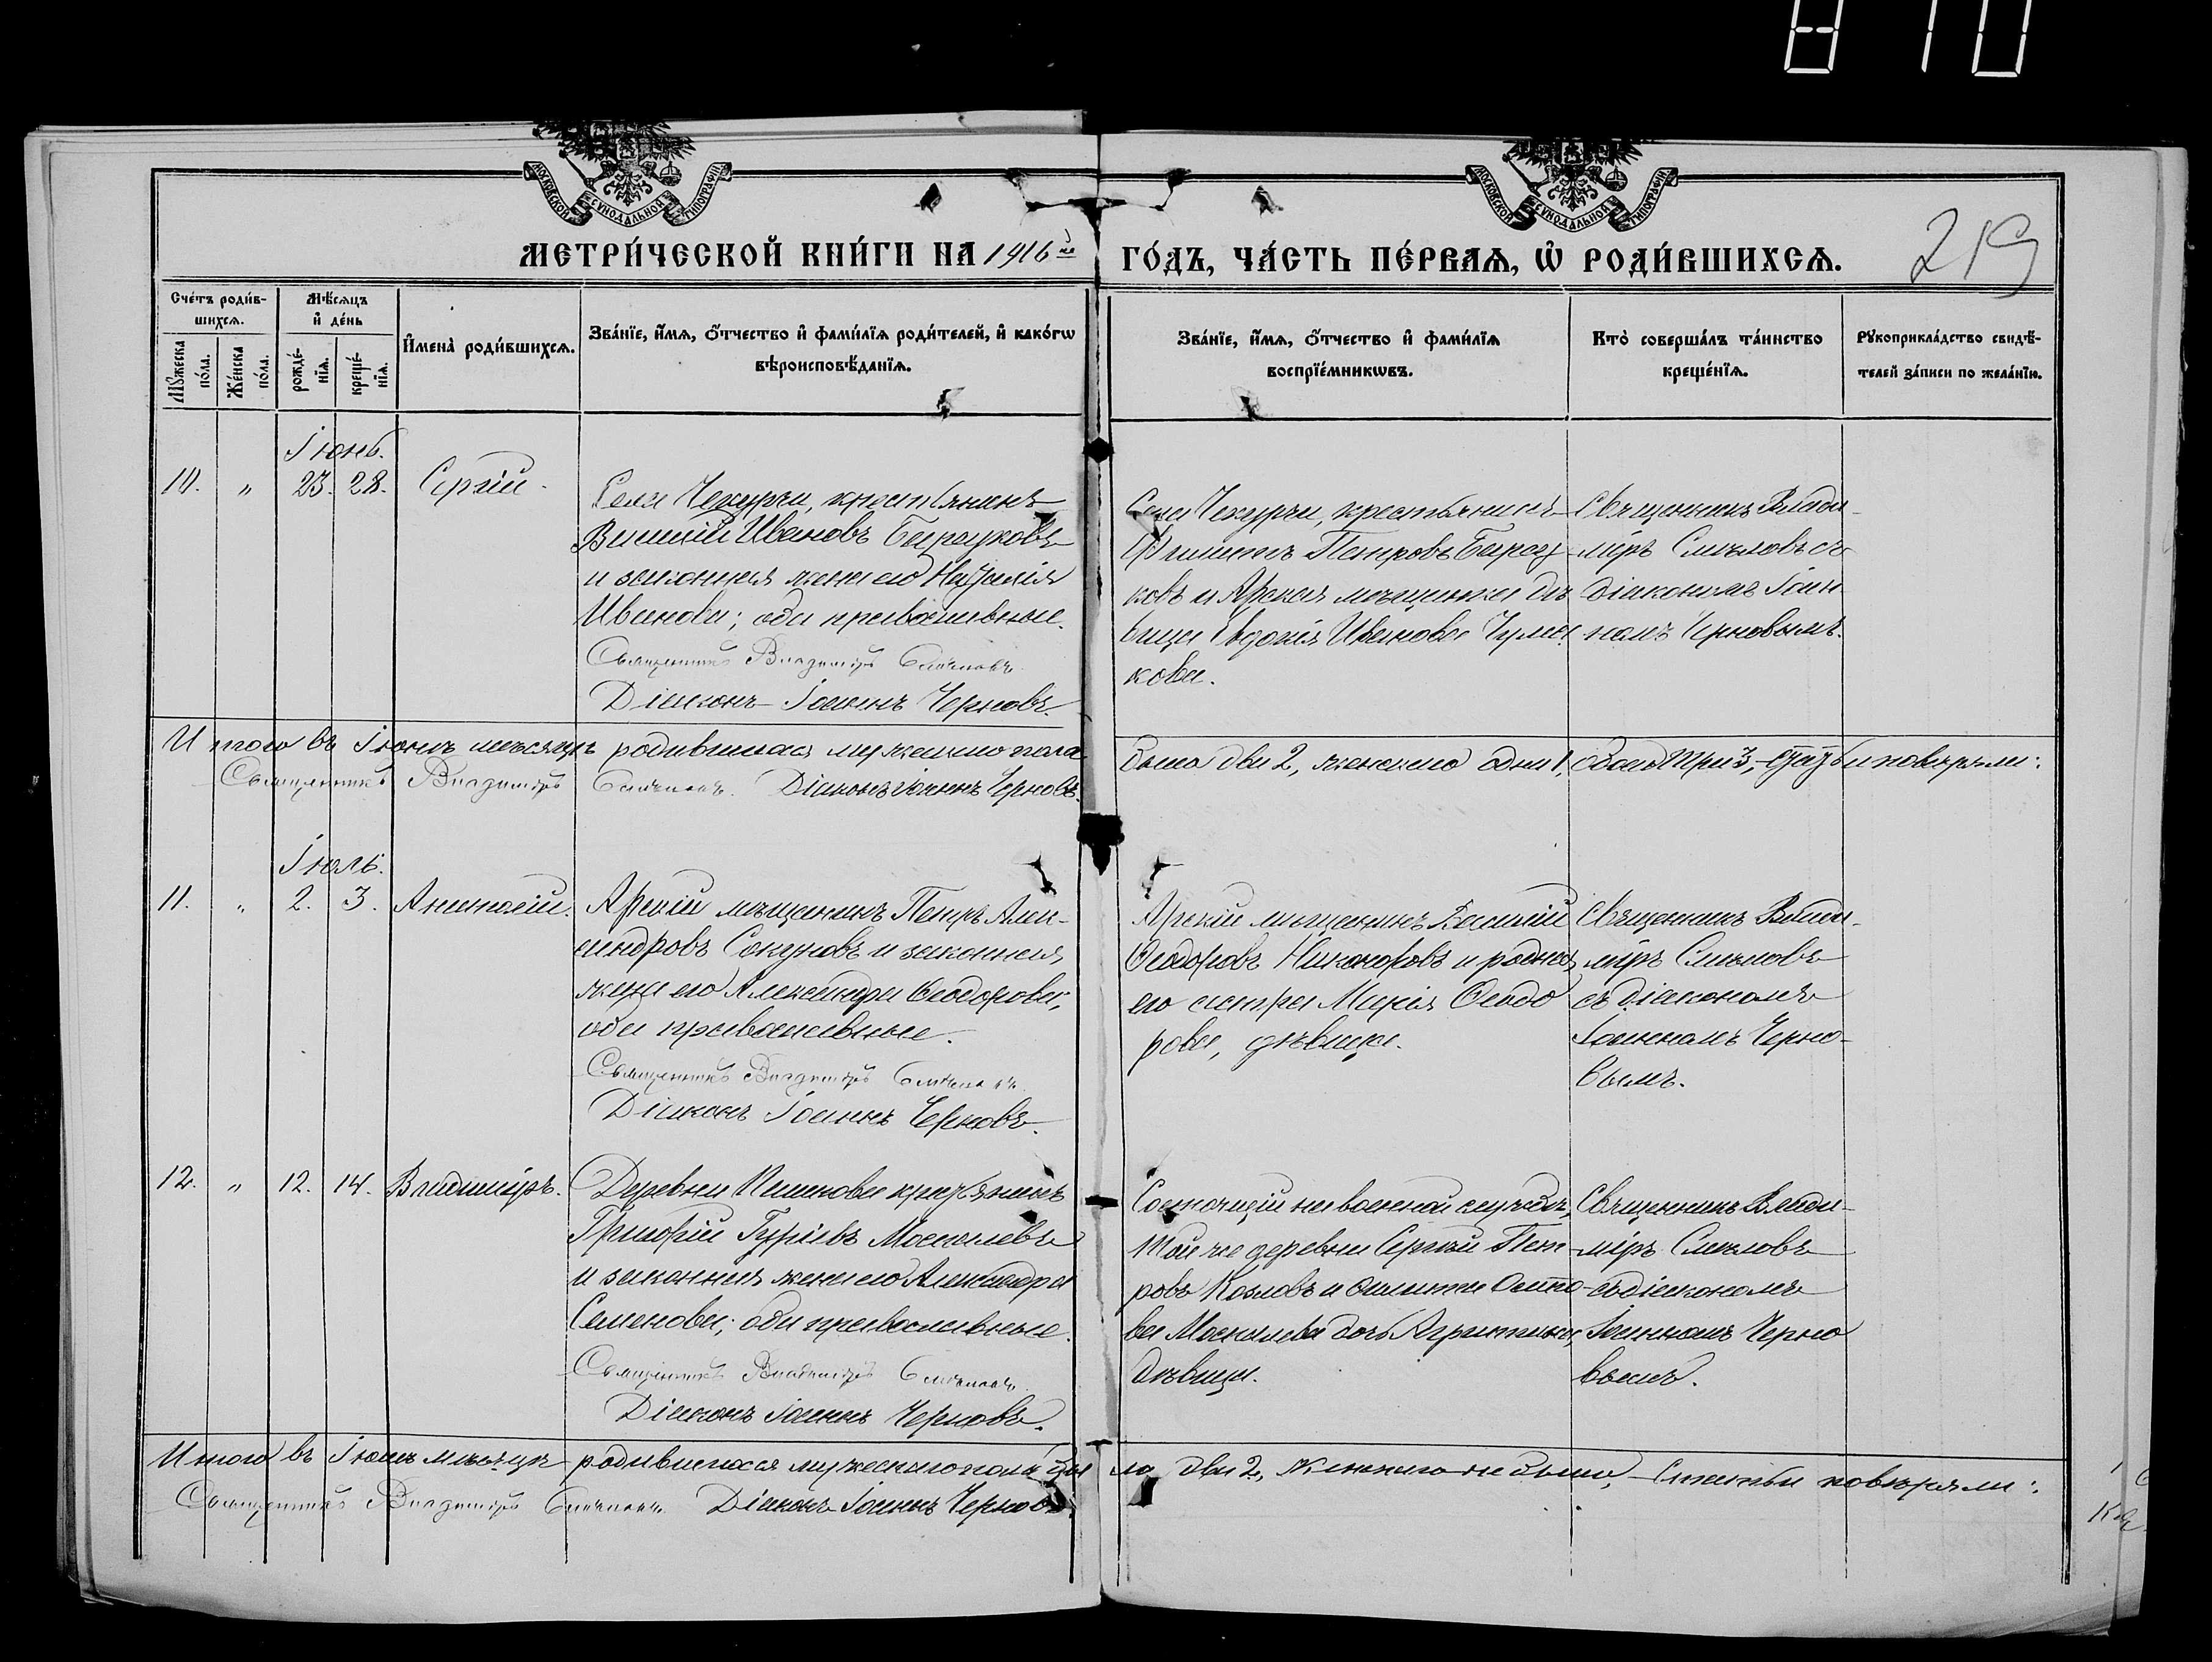 810
МОСКОВСКОЙ СѴНОДАЛЬНОЙ ТИПОГРАФІИ
МОСКОВСКОЙ СѴНОДАЛЬНОЙ ТИПОГРАФІИ
МЕТРИ́ЧЕСКОЙ КНИ́ГИ НА 1916й
ГО́ДЪ, ЧА́СТЬ ПЕ́РВАѦ, Ѡ҆ РОДИ́ВШИХСѦ.
219
Сче́тъ роди́в-
шихсѧ.
Мѣ́сѧцъ
и҆ де́нь
Мꙋ́жеска
по́ла.
Же́нска
по́ла.
рожде́-
нїѧ.
креще́-
нїѧ.
И҆мена̀ роди́вшихсѧ.
Зва́нїе, и҆́мѧ, ѻ҆́тчество и҆ фами́лїѧ роди́телей, и҆ како́гѡ
вѣроисповѣ́данїѧ.
Зва́нїе, и҆́мѧ, ѻ҆́тчество и҆ фами́лїѧ
воспрїе́мникѡвъ.
Кто̀ соверша́лъ та́инство
креще́нїѧ.
Рꙋкоприкла́дство свидѣ́-
телей за́писи по жела́нїю.
Іюнь.
10. " 23. 28. Сергій.
Села Чекурчи, крестьянинъ
Василій Ивановъ
и законная жена его Наталія
Иванова; оба православные.
Священникъ Владиміръ Смѣловъ
Діаконъ Іоаннъ Черновъ.
Села Чекурчи, крестьянинъ
Филиппъ Петровъ
ковъ и Арская мѣщанка дѣ
вица Евдокія Иванова
кова.
Священникъ Влади-
міръ Смѣловъ съ
діакономъ Іоан
номъ Черновымъ.
Итого въ Іюнѣ мѣсяцѣ родившихся мужескаго пола
было два 2, женскаго одна 1, обоего три 3, повѣряли:
Священникъ Владиміръ Смѣловъ. Діаконъ Іоаннъ Черновъ.
Іюль.
11. " 2. 3. Анатолій.
Арскій мѣщанинъ Петръ Алек-
сандровъ Сокуровъ и законная
жена его Александра Ѳеодорова;
оба православные.
Священникъ Владиміръ Смѣловъ
Діаконъ Іоаннъ Черновъ.
Арскій мѣщанинъ Василій
Ѳеодоровъ Никаноровъ и родная
его сестра Марія Ѳеодо
рова, дѣвица.
Священникъ Влади-
міръ Смѣловъ
съ діакономъ
Іоанномъ Черно-
вымъ.
12. " 12. 14. Владиміръ.
Деревни крестьянинъ
Григорій Гурьевъ Москалевъ
и законная жена его Александра
Семенова; оба православные.
Священникъ Владиміръ Смѣловъ
Діаконъ Іоаннъ Черновъ.
Состоящій на военной службѣ,
той же деревни Сергѣй Пет-
ровъ Козловъ и
ва Москалева дочь Агриппина,
дѣвица.
Священникъ Влади-
міръ Смѣловъ
съ діакономъ
Іоанномъ Черно
вымъ.
Итого въ Іюлѣ мѣсяцѣ родившихся мужескаго пола бы
ло два 2, женскаго не было, Статьи повѣряли:
Священникъ Владиміръ Смѣловъ. Діаконъ Іоаннъ Черновъ.